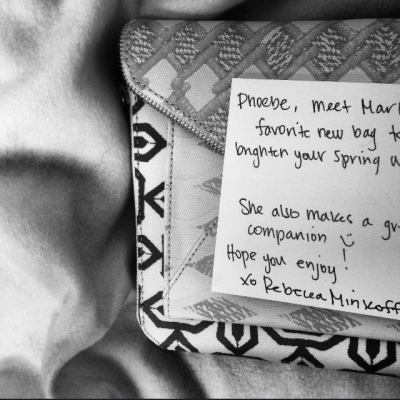 Phoebe, meet Mar
favorite new bag to
brighten your spring w
She also makes a gr
companion
Hope you enjoy!
xo Rebecca Minkoff